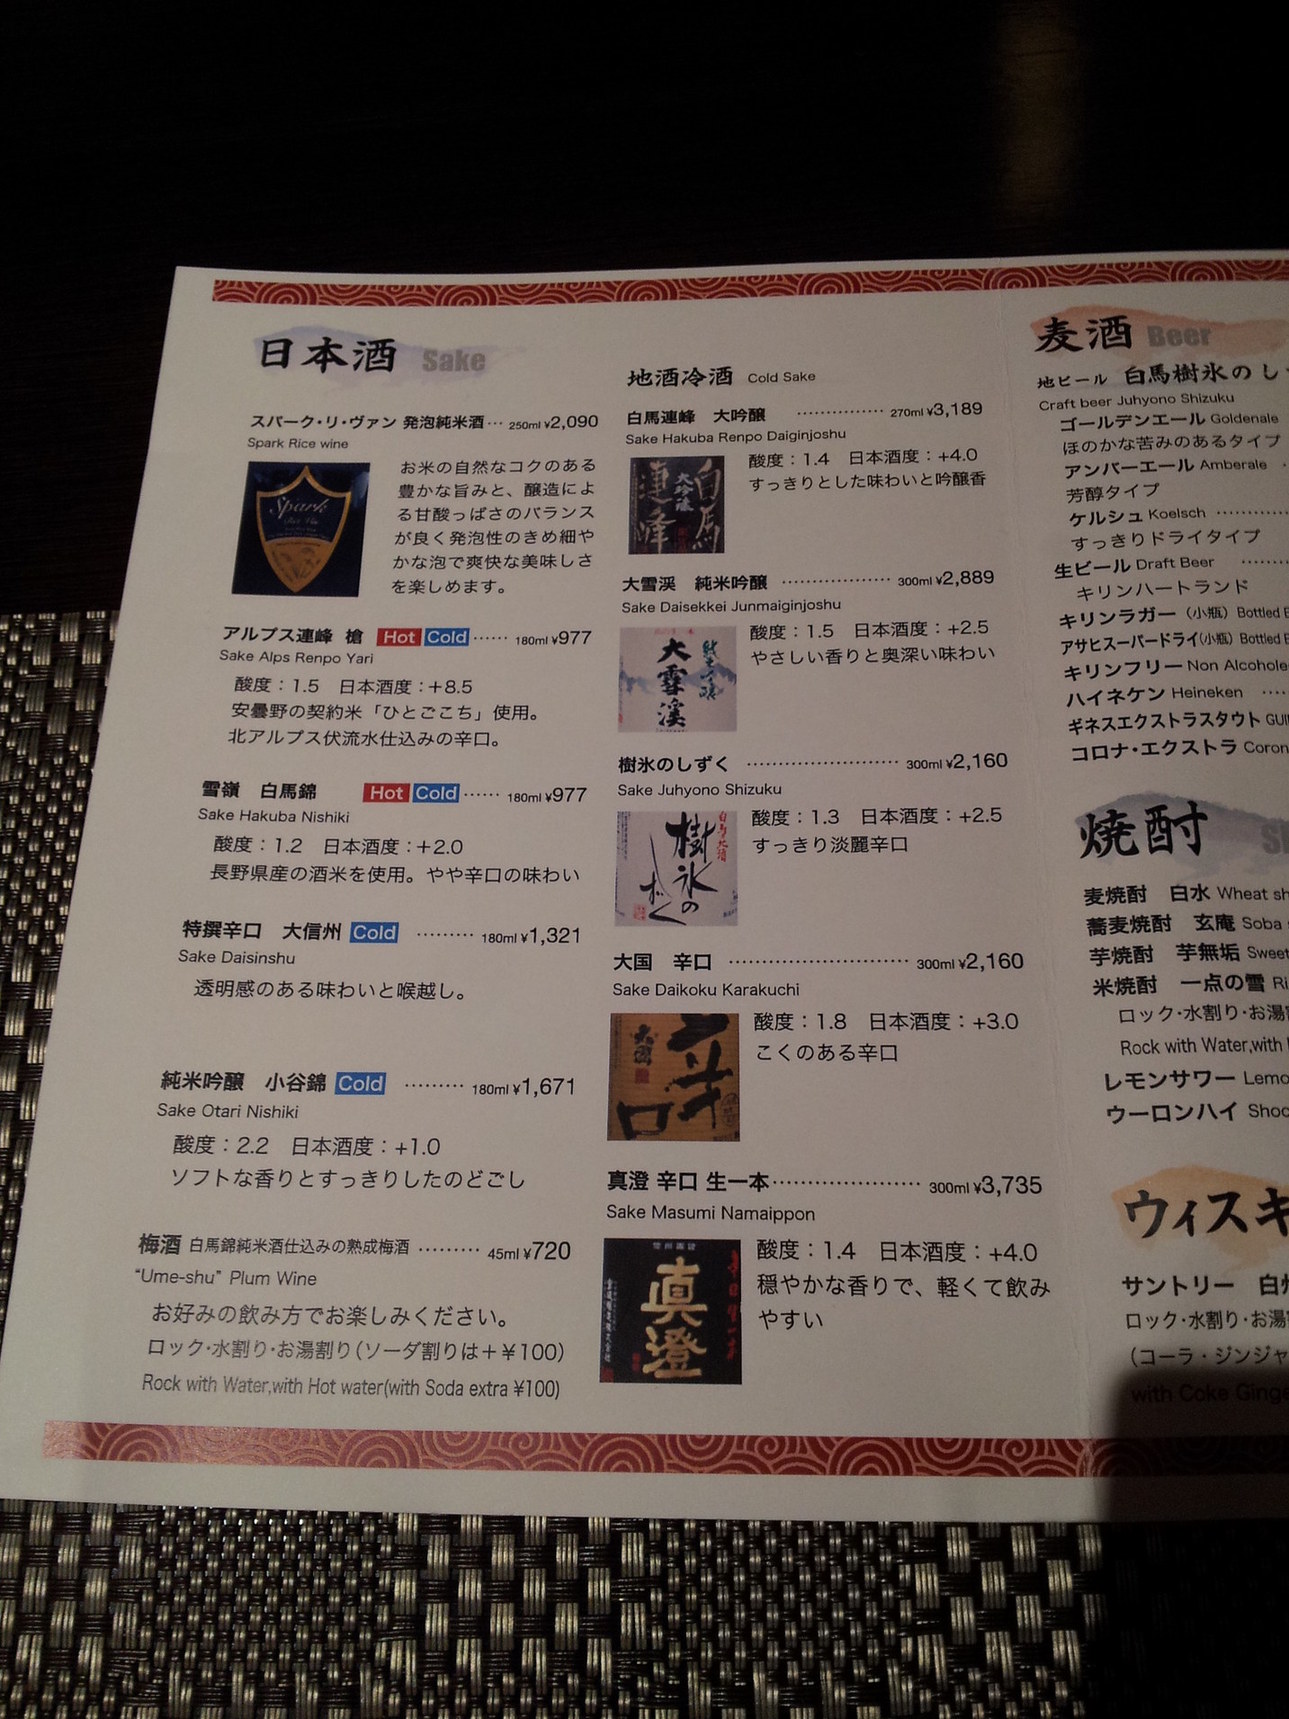 日本酒 Sake
スパーク・リ・ヴァン 発泡純米酒… 250ml ¥2,090
Spark Rice wine
Spark
お米の自然なコクのある
豊かな旨みと、醸造によ
る甘酸っぱさのバランス
が良く発泡性のきめ細や
かな泡で爽快な美味しさ
を楽しめます。
アルプス連峰 槍 Hot Cold …… 180ml ¥977
Sake Alps Renpo Yari
酸度：1.5 日本酒度：+8.5
安曇野の契約米「ひとごこち」使用。
北アルプス伏流水仕込みの辛口。
雪嶺 白馬錦 Hot Cold …… 180ml ¥977
Sake Hakuba Nishiki
酸度：1.2 日本酒度：+2.0
長野県産の酒米を使用。やや辛口の味わい
特撰辛口 大信州 Cold ……… 180ml ¥1,321
Sake Daisinshu
透明感のある味わいと喉越し。
純米吟醸 小谷錦 Cold ……… 180ml ¥1,671
Sake Otari Nishiki
酸度：2.2 日本酒度：+1.0
ソフトな香りとすっきりしたのどごし
梅酒 白馬錦純米酒仕込みの熟成梅酒 ……… 45ml ¥720
“Ume-shu” Plum Wine
お好みの飲み方でお楽しみください。
ロック・水割り・お湯割り（ソーダ割りは＋¥100）
Rock with Water,with Hot water(with Soda extra ¥100)
地酒冷酒 Cold Sake
白馬連峰 大吟醸 …………… 270ml ¥3,189
Sake Hakuba Renpo Daiginjoshu
白馬
大吟醸
連峰
酸度：1.4 日本酒度：+4.0
すっきりとした味わいと吟醸香
大雪渓 純米吟醸 ……………… 300ml ¥2,889
Sake Daisekkei Junmaiginjoshu
大雪渓
酸度：1.5 日本酒度：+2.5
やさしい香りと奥深い味わい
樹氷のしずく …………………… 300ml ¥2,160
Sake Juhyono Shizuku
樹氷の
しずく
酸度：1.3 日本酒度：+2.5
すっきり淡麗辛口
大国 辛口 ………………………… 300ml ¥2,160
Sake Daikoku Karakuchi
大國
辛口
酸度：1.8 日本酒度：+3.0
こくのある辛口
真澄 辛口 生一本………………… 300ml ¥3,735
Sake Masumi Namaippon
真澄
酸度：1.4 日本酒度：+4.0
穏やかな香りで、軽くて飲み
やすい
麦酒 Beer
地ビール 白馬樹氷のし
Craft beer Juhyono Shizuku
ゴールデンエール Goldenale
ほのかな苦みのあるタイプ
アンバーエール Amberale
芳醇タイプ
ケルシュ Koelsch …………
すっきりドライタイプ
生ビール Draft Beer …………
キリンハートランド
キリンラガー（小瓶）Bottled
アサヒスーパードライ(小瓶) Bottled
キリンフリー Non Alcohole
ハイネケン Heineken ……
ギネスエクストラスタウト GUI
コロナ・エクストラ Coron
焼酎
麦焼酎 白水 Wheat sh
蕎麦焼酎 玄庵 Soba
芋焼酎 芋無垢 Sweet
米焼酎 一点の雪 Ri
ロック・水割り・お湯
Rock with Water,with
レモンサワー Lemo
ウーロンハイ Shoc
ウィスキ
サントリー 白
ロック・水割り・お湯
（コーラ・ジンジャ
with Coke Ginge